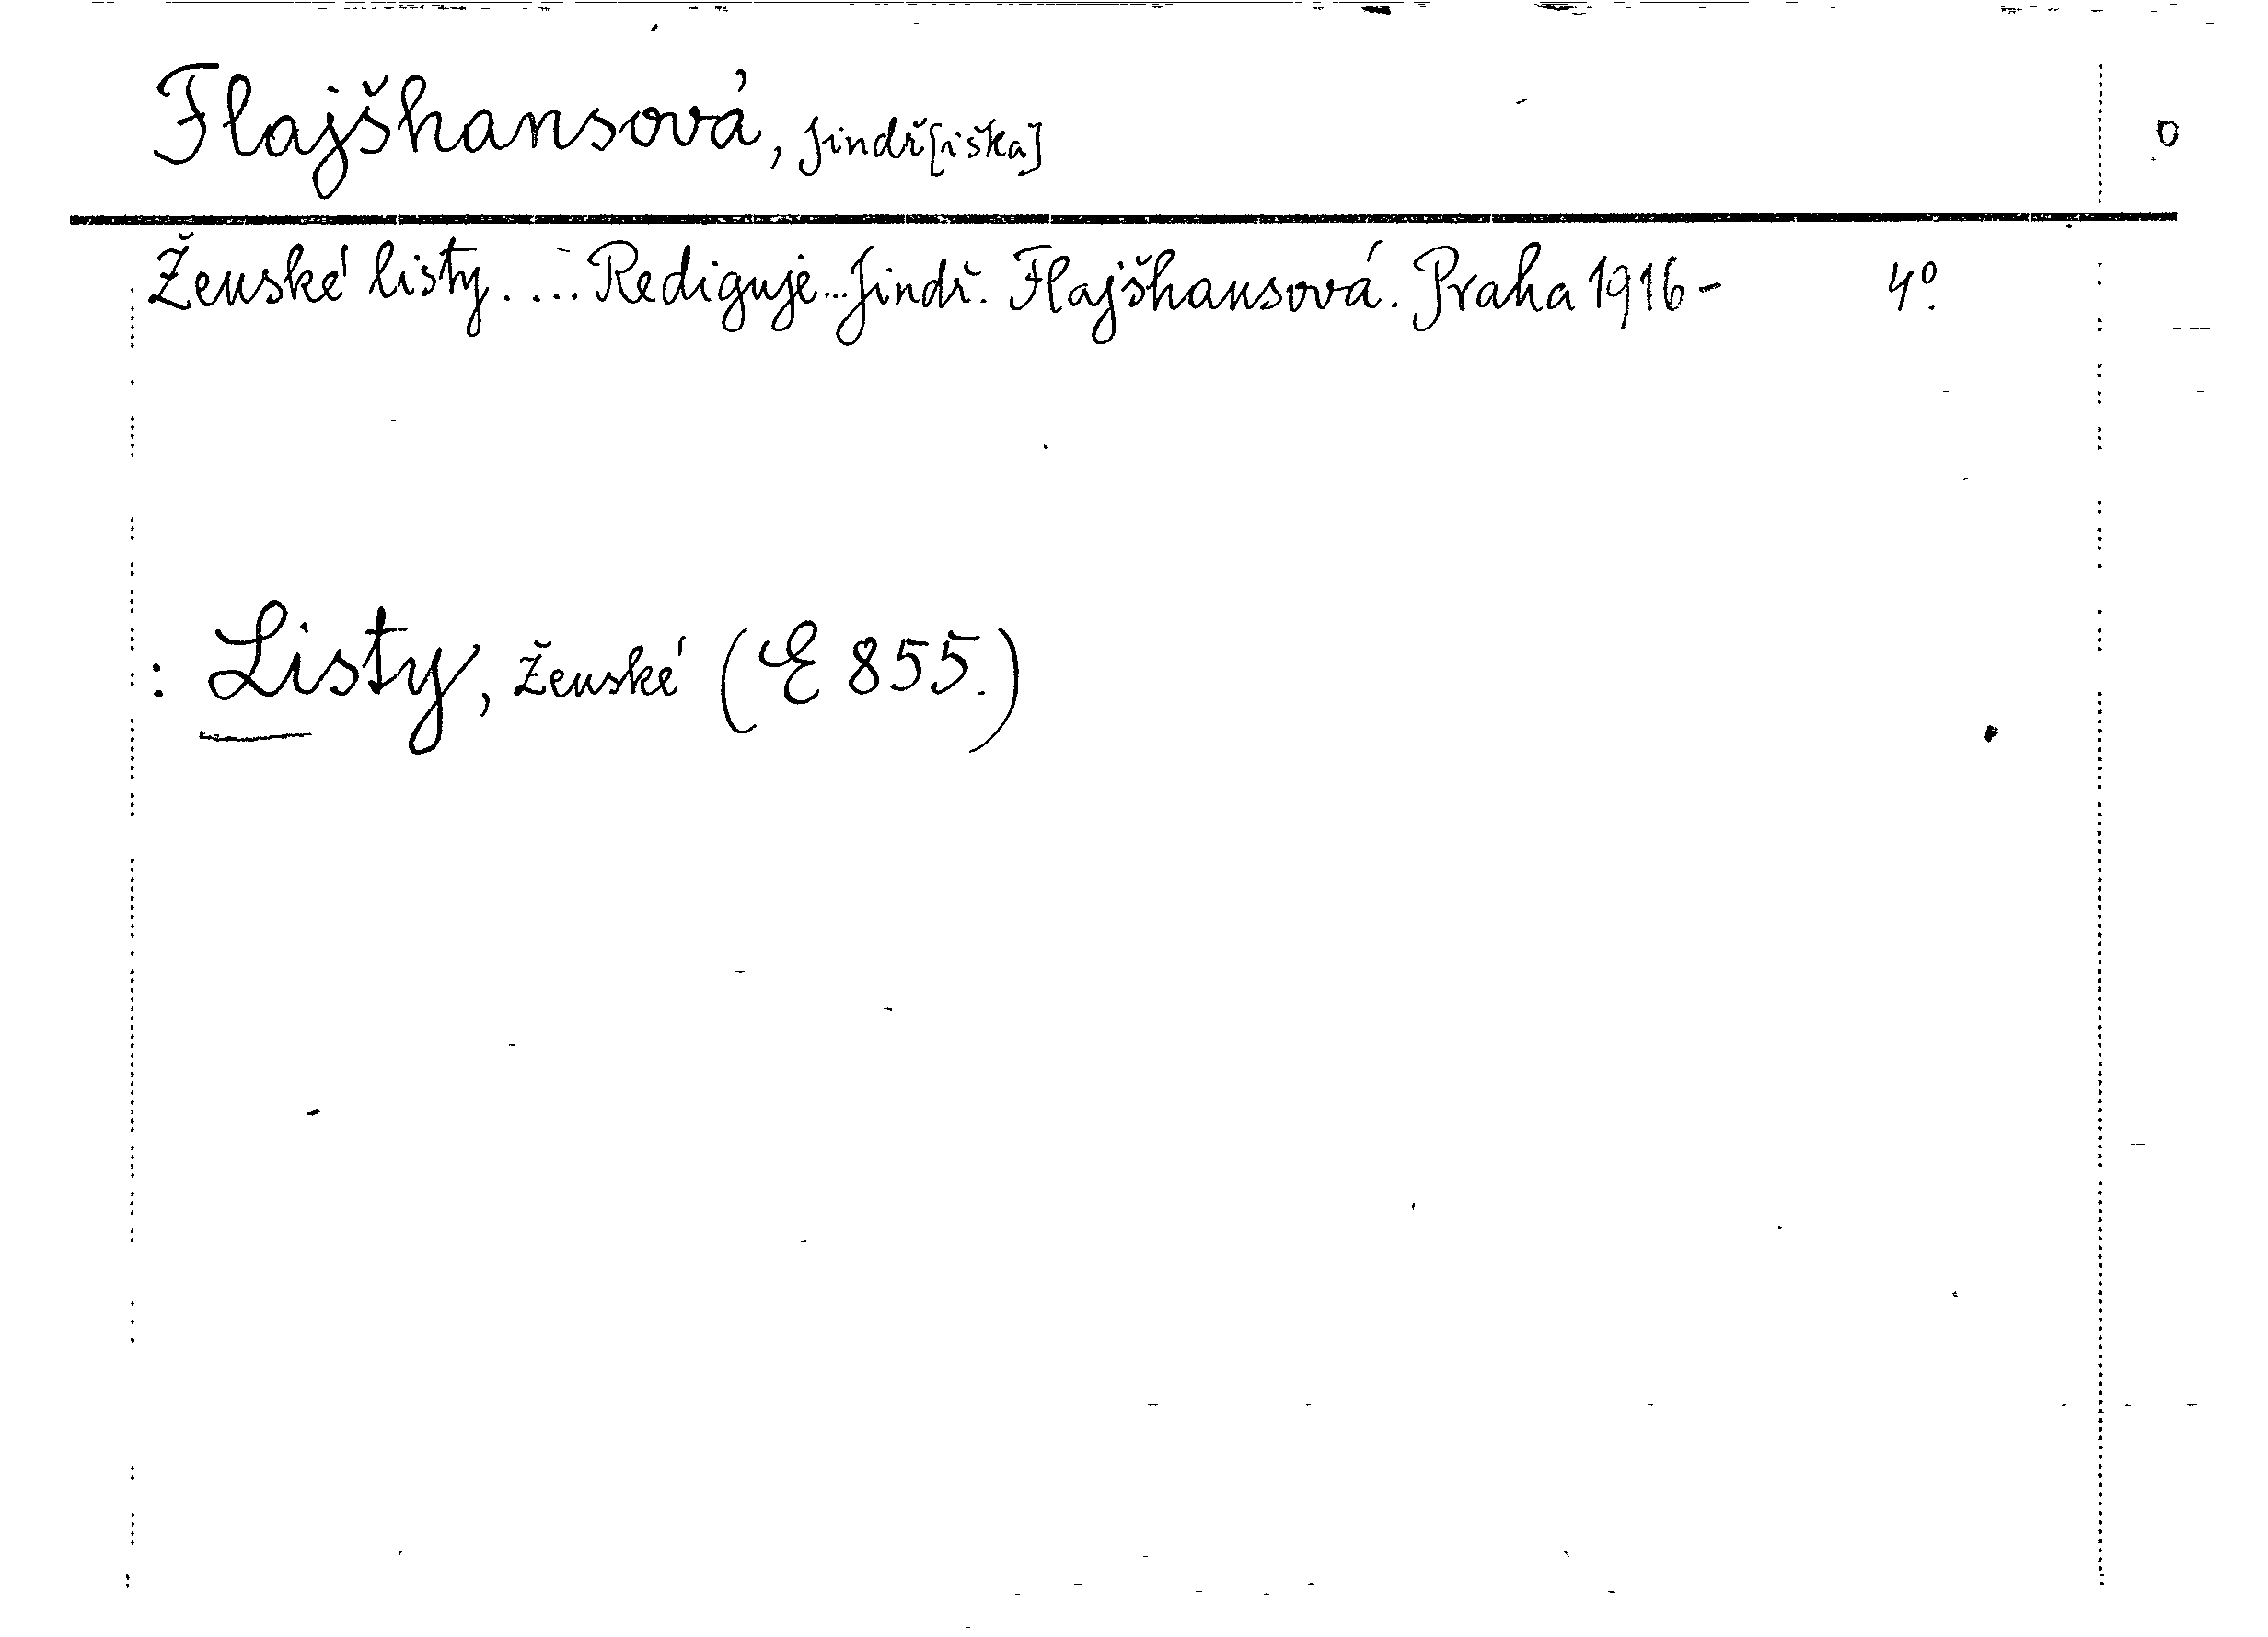 Flajšhansová, Jindř[iška] o
Ženské listy. ... Rediguje... Jindř. Flajšhansová. Praha 1916- 4º.
: Listy, ženské (E 855.)